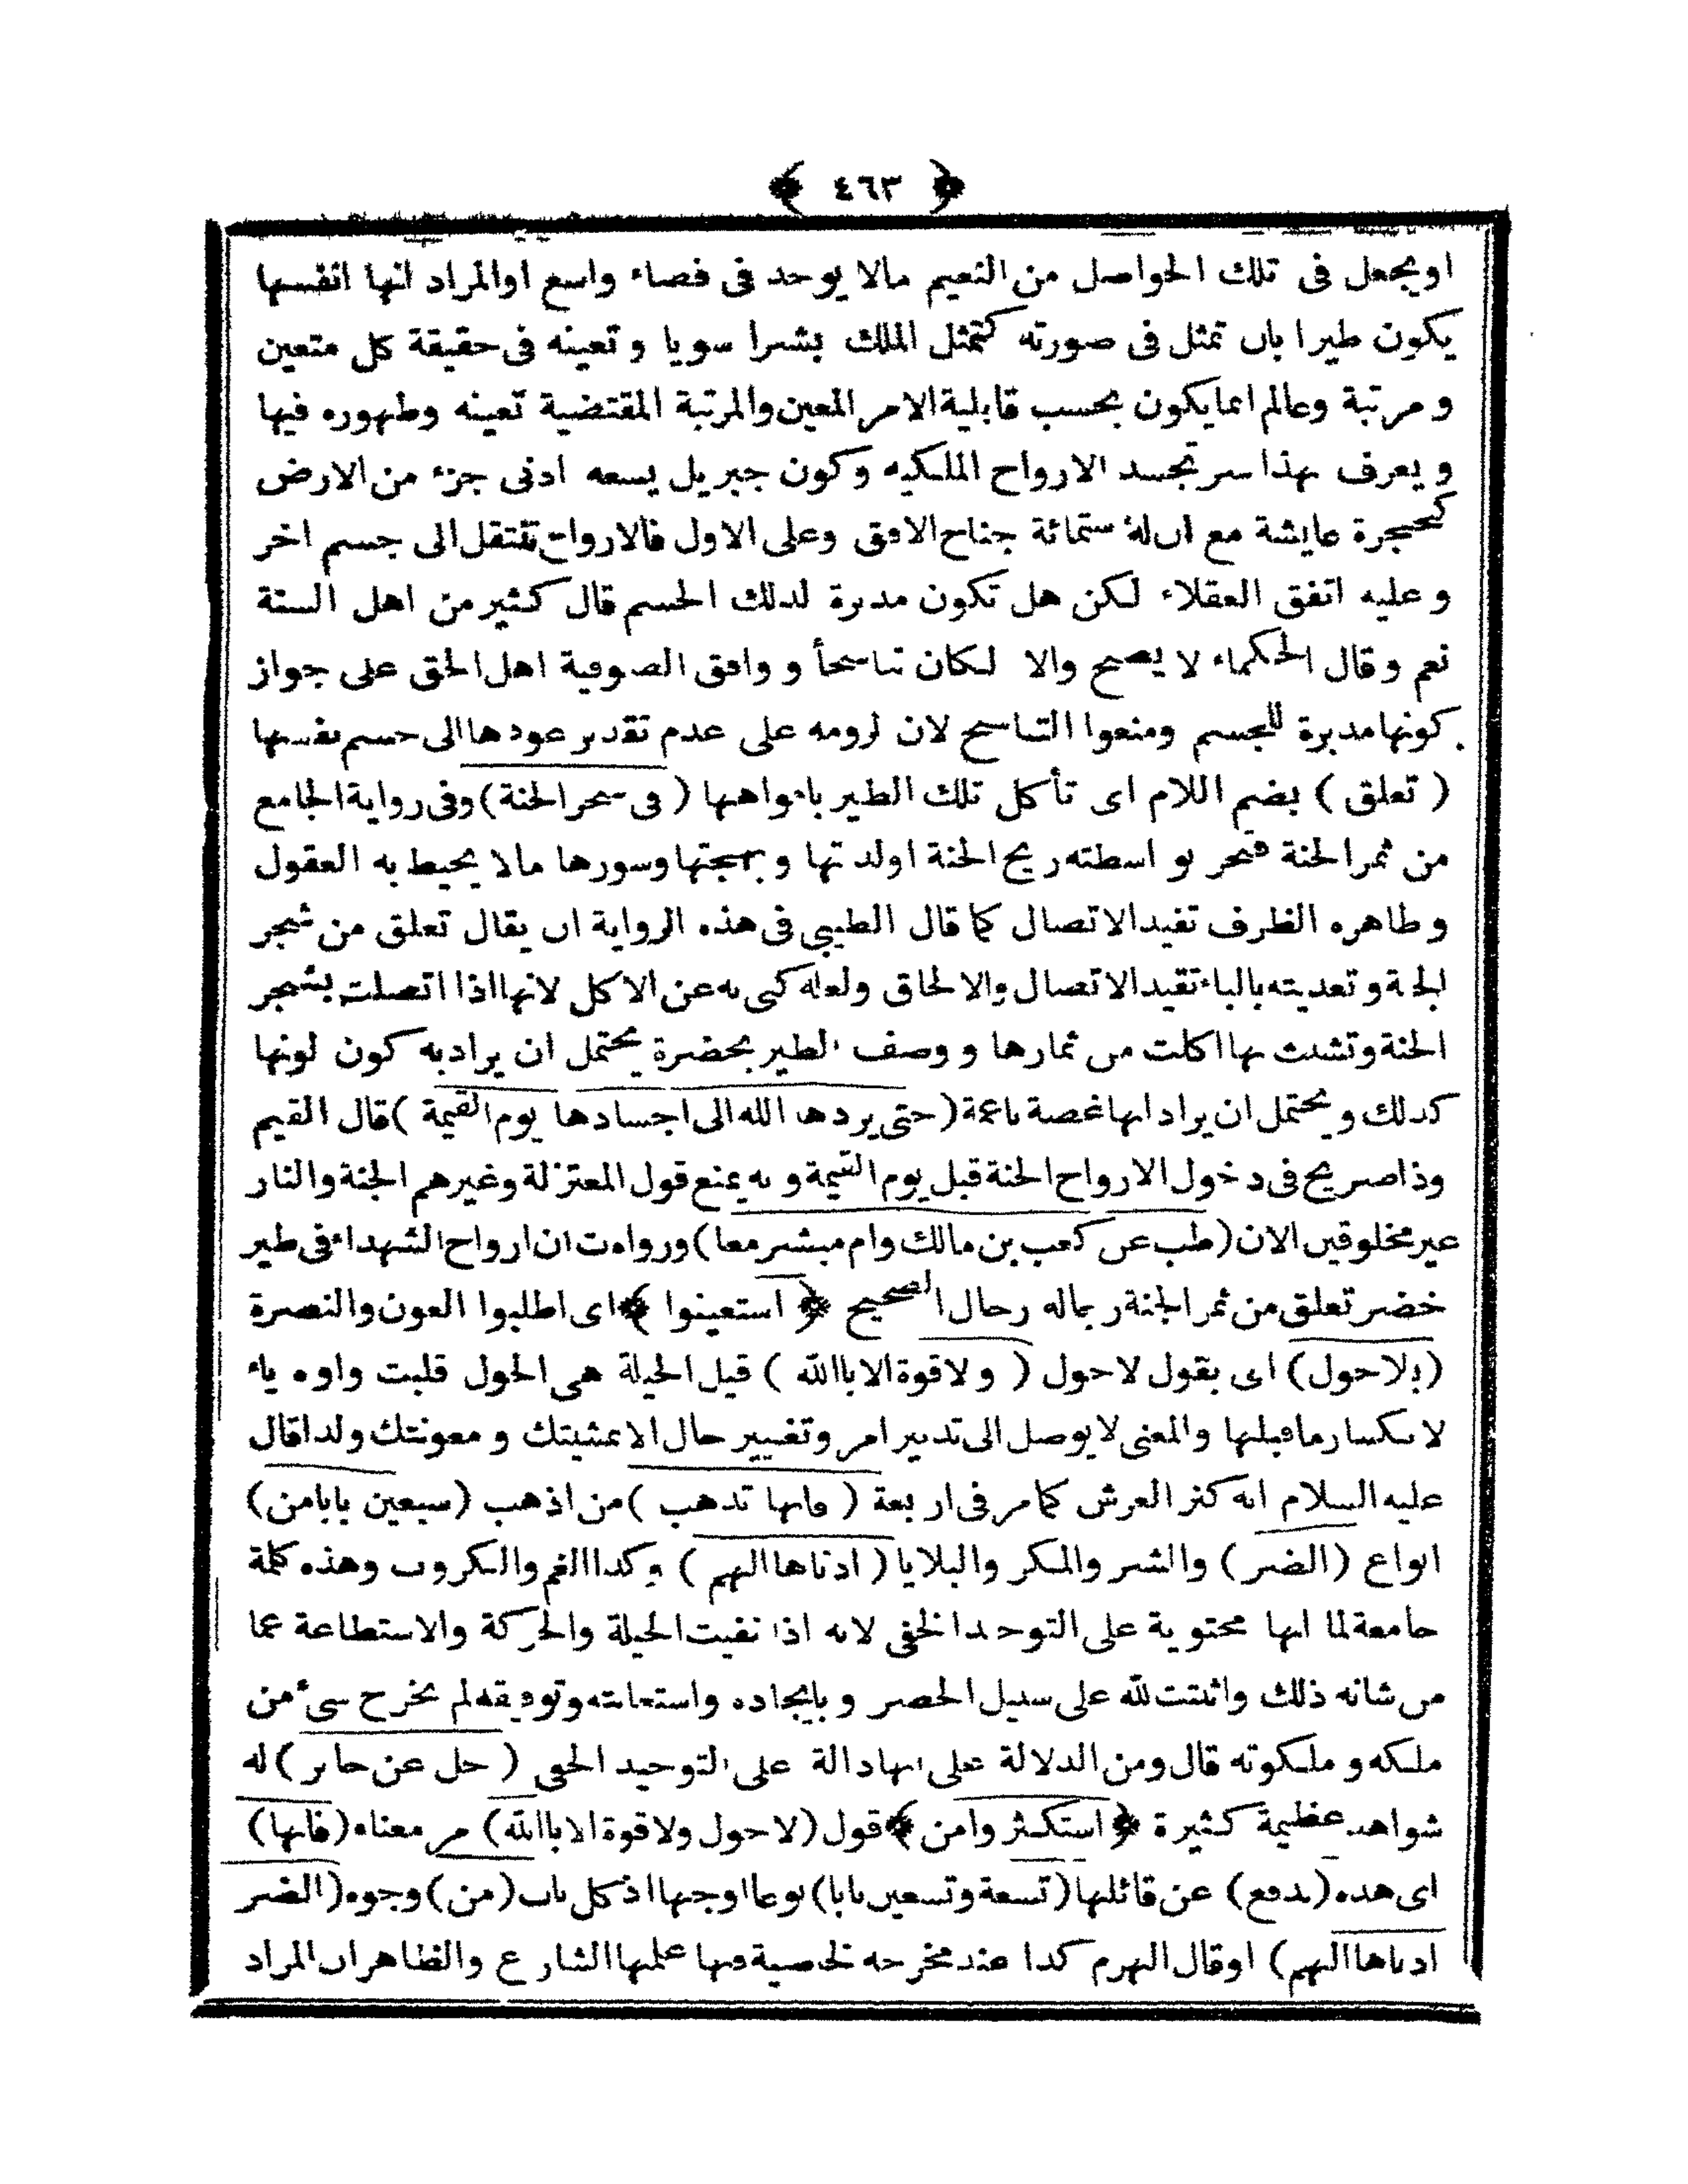 ﴿ ٤٦٣ ﴾
او يجعل فى تلك الحواصل من النعيم مالا يوجد فى فضاء واسع اوالمراد انها انفسها
يكون طيرا بان تمثل فى صورته كتمثل الملك بشرا سويا وتعينه فى حقيقة كل متعين
ومرتبة وعالم انما يكون بحسب قابلية الامر المعين والمرتبة المقتضية تعينه وظهوره فيها
ويعرف بهذا سر تجسد الارواح الملكيه وكون جبريل يسعه ادنى جزء من الارض
كحجرة عايشة مع ان له ستمائة جناح الافق وعلى الاول فالارواح تنتقل الى جسم اخر
وعليه اتفق العقلاء لكن هل تكون مدبرة لذلك الجسم قال كثير من اهل السنة
نعم وقال الحكماء لا يصح والا لكان تناسخاً ووافق الصوفية اهل الحق على جواز
كونها مدبرة للجسم ومنعوا التناسخ لان لزومه على عدم تقدير عودها الى جسم نفسها
( تعلق ) بضم اللام اى تأكل تلك الطير بافواهها ( فى شجر الجنة ) وفى رواية الجامع
من ثمر الجنة فتجر بواسطته ريح الجنة اولذتها وبهجتها وسورها مالا يحيط به العقول
وظاهره الظرف تفيد الاتصال كما قال الطيبى فى هذه الرواية ان يقال تعلق من شجر
الجنة وتعديته بالباء تفيد الاتصال والالحاق ولعله كنى به عن الاكل لانها اذا اتصلت بشجر
الجنة وتشبث بها اكلت من ثمارها ووصف الطير بخضرة يحتمل ان يراد به كون لونها
كذلك ويحتمل ان يراد انها غضة ناعمة ( حتى يردها الله الى اجسادها يوم القيمة ) قال القيم
وذا صريح فى دخول الارواح الجنة قبل يوم القيمة وبه يمنع قول المعتزلة وغيرهم الجنة والنار
غير مخلوقين الان ( طب عن كعب بن مالك وام مبشر معا ) ورواه ت ان ارواح الشهداء فى طير
خضر تعلق من ثمر الجنة رجاله رجال الصحيح ﴿ استعينوا ﴾ اى اطلبوا العون والنصرة
( بلاحول ) اى بقول لاحول ( ولاقوة الا باالله ) قيل الحيلة هى الحول قلبت واوه ياء
لانكسار ماقبلها والمعنى لا يوصل الى تدبير امر وتغيير حال الا بمشيتك ومعونتك ولذا قال
عليه السلام انه كنز العرش كما مر فى اربعة ( فانها تذهب ) من اذهب ( سبعين بابا من )
انواع ( الضر ) والشر والمكر والبلايا ( ادناها الهم ) وكذا الغم والكروب وهذه كلمة
جامعة لما انها محتوية على التوحد الخفى لانه اذا نفيت الحيلة والحركة والاستطاعة عما
من شانه ذلك واثبتت لله على سبيل الحصر وبايجاده واستعانته وتوفيقه لم يخرج شئ من
ملكه وملكوته قال ومن الدلالة على انها دالة على التوحيد الخفى ( حل عن جابر ) له
شواهد عظيمة كثيرة ﴿ استكثروا من ﴾ قول ( لاحول ولاقوة الا باالله ) مر معناه ( فانها )
اى هذه ( تدفع ) عن قائلها ( تسعة وتسعين بابا ) نوعا اوجها اذ كل باب ( من ) وجوه ( الضر
ادناها الهم ) اوقال الهرم كذا عند مخرجه لخاصية فيها علمها الشارع والظاهر ان المراد